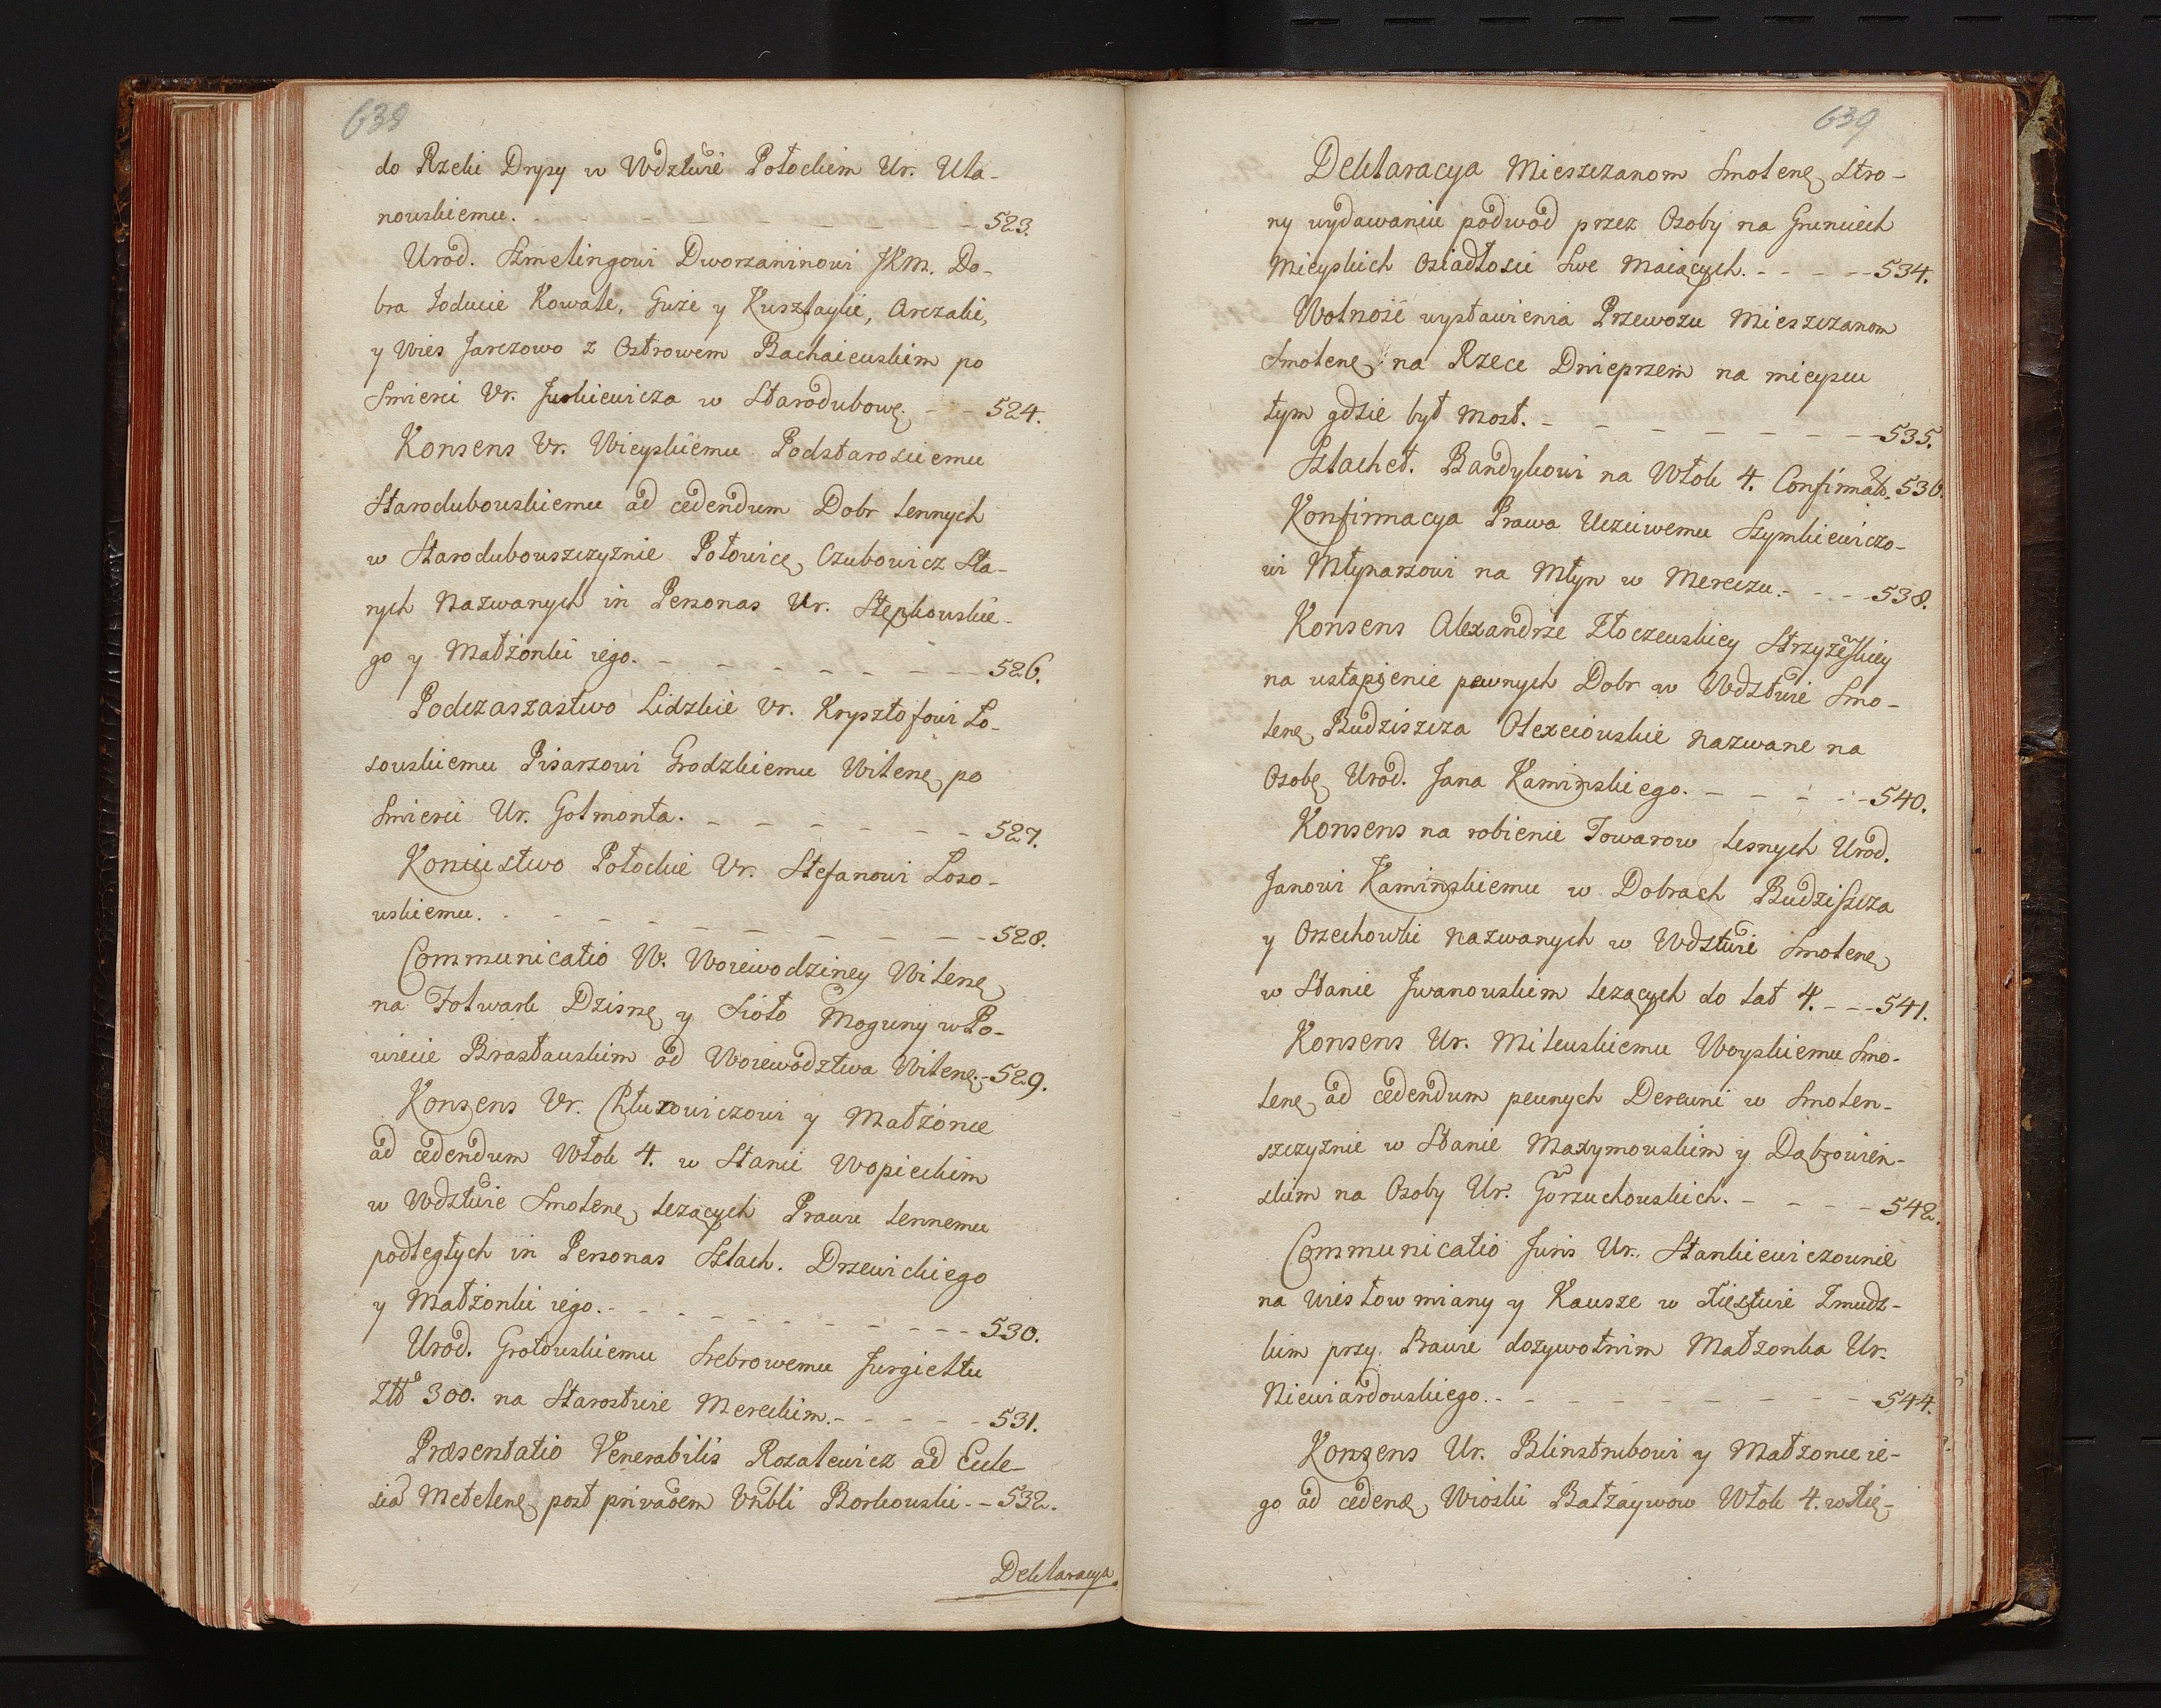 638
do Rzeki Dryſy w Wdztwie Połockim Ur. Uła-
nowskiemu. - - - - - - - 523.
Urod. Szmelingowi Dworzaninowi JKM. Do-
bra Joducie Kowale, Guże y Kusztayki, Arczaki,
y Wies Jarczowo z Ostrowem Rachaiewskim po
Smierci Ur. Juskiewicza w Starodubowę. - - 524.
Konsens Ur. Wieyskiemu Podstarosciemu
Starodubowskiemu ad cedendum Dobr lennych
w Starodubowszczyznie Połowicę, Czubowicz Sta-
rych nazwanych in Personas Ur. Stępkowskie-
go y Małżonki iego. - - - - - - - 526.
Podczaszastwo Lidzkie Ur. Krysztofowi Ło-
sowskiemu Pisarzowi Grodzkiemu Wilenę, po
Smierci Ur. Gotmonta. - - - - - - 527.
Koniustwo Połockie Ur. Stefanowi Łoso-
wskiemu. - - - - - - - - 528.
Communicatio W. Woiewodziney Wilenę,
na Folwark Dzisnę y Sioło Moguny w Po-
wiecie Brasławskim od Woiewodztwa Wilenę. - 529.
Konsens Ur. Chłuzowiczowi y Małżonce
ad cedendum Włok 4. w Stanie Wopieckim
w Wdztwie Smolenę, leżących Prawu lennemu
podległych in Personas Szlach. Drzewickiego
y Małżonki iego. - - - - - - - - 530.
Urod. Grotowskiemu Srebrowemu Jurgieltu
Złł 300. na Starostwie Mereckim. - - - - - 531.
Præsentatio Venerabilis Rozalewicz ad Eccle-
sia Metelenę, post privaõem Vnbli Borkowski. - - 532.
Deklaracya.
639
Deklaracya Mieszczanom Smolenę, Stro-
ny wydawaniu podwod przez Osoby na Gruntech
Mieyskich Osiadłosci Swe maiących. - - - - 534.
Wolność wystawienia Przewozu Mieszczanom
Smolenę, na Rzece Dnieprzem na mieyscu
tym gdzie był Most. - - - - - - - 535.
Szlachet. Bandykowi na Włok 4. Confirmatõ. 536.
Konfirmacya Prawa Uczciwemu Szymkiewiczo-
wi Młynarzowi na Młyn w Mereczu. - - - 538.
Konsens Alexandrze Złoczewskiey Strzyżeſkiey
na ustąpienie pewnych Dobr w Wdztwie Smo-
lenę, Budziszcza Olexeiowskie nazwane na
Osobę Urod. Jana Kaminskiego. - - - - 540.
Konsens na robienie Towarow Lesnych Urod.
Janowi Kaminskiemu w Dobrach Budziſzcza
y Orzechowki nazwanych w Wdztwie Smolenę,
w Stanie Jwanowskim leżących do lat 4. - - - 541.
Konsens Ur. Milewskiemu Woyskiemu Smo-
lenę, ad cedendum pewnych Derewni w Smolen-
szczyznie w Stanie Maxymowskim y Dąbrowien-
skim na Osoby Ur. Gorzuchowskich. - - - - 542.
Communicatio Juris Ur. Stankiewiczownie
na Wies Łowmiany y Kausze w Xięstwie Zmudz-
kim przy Prawie dożywotnim Małżonka Ur.
Niewiardowskiego. - - - - - - - - 544.
Konsens Ur. Blinstrubowi y Małżonce ie-
go ad cedenę, Wioski Batżaywow Włok 4. w Xię-